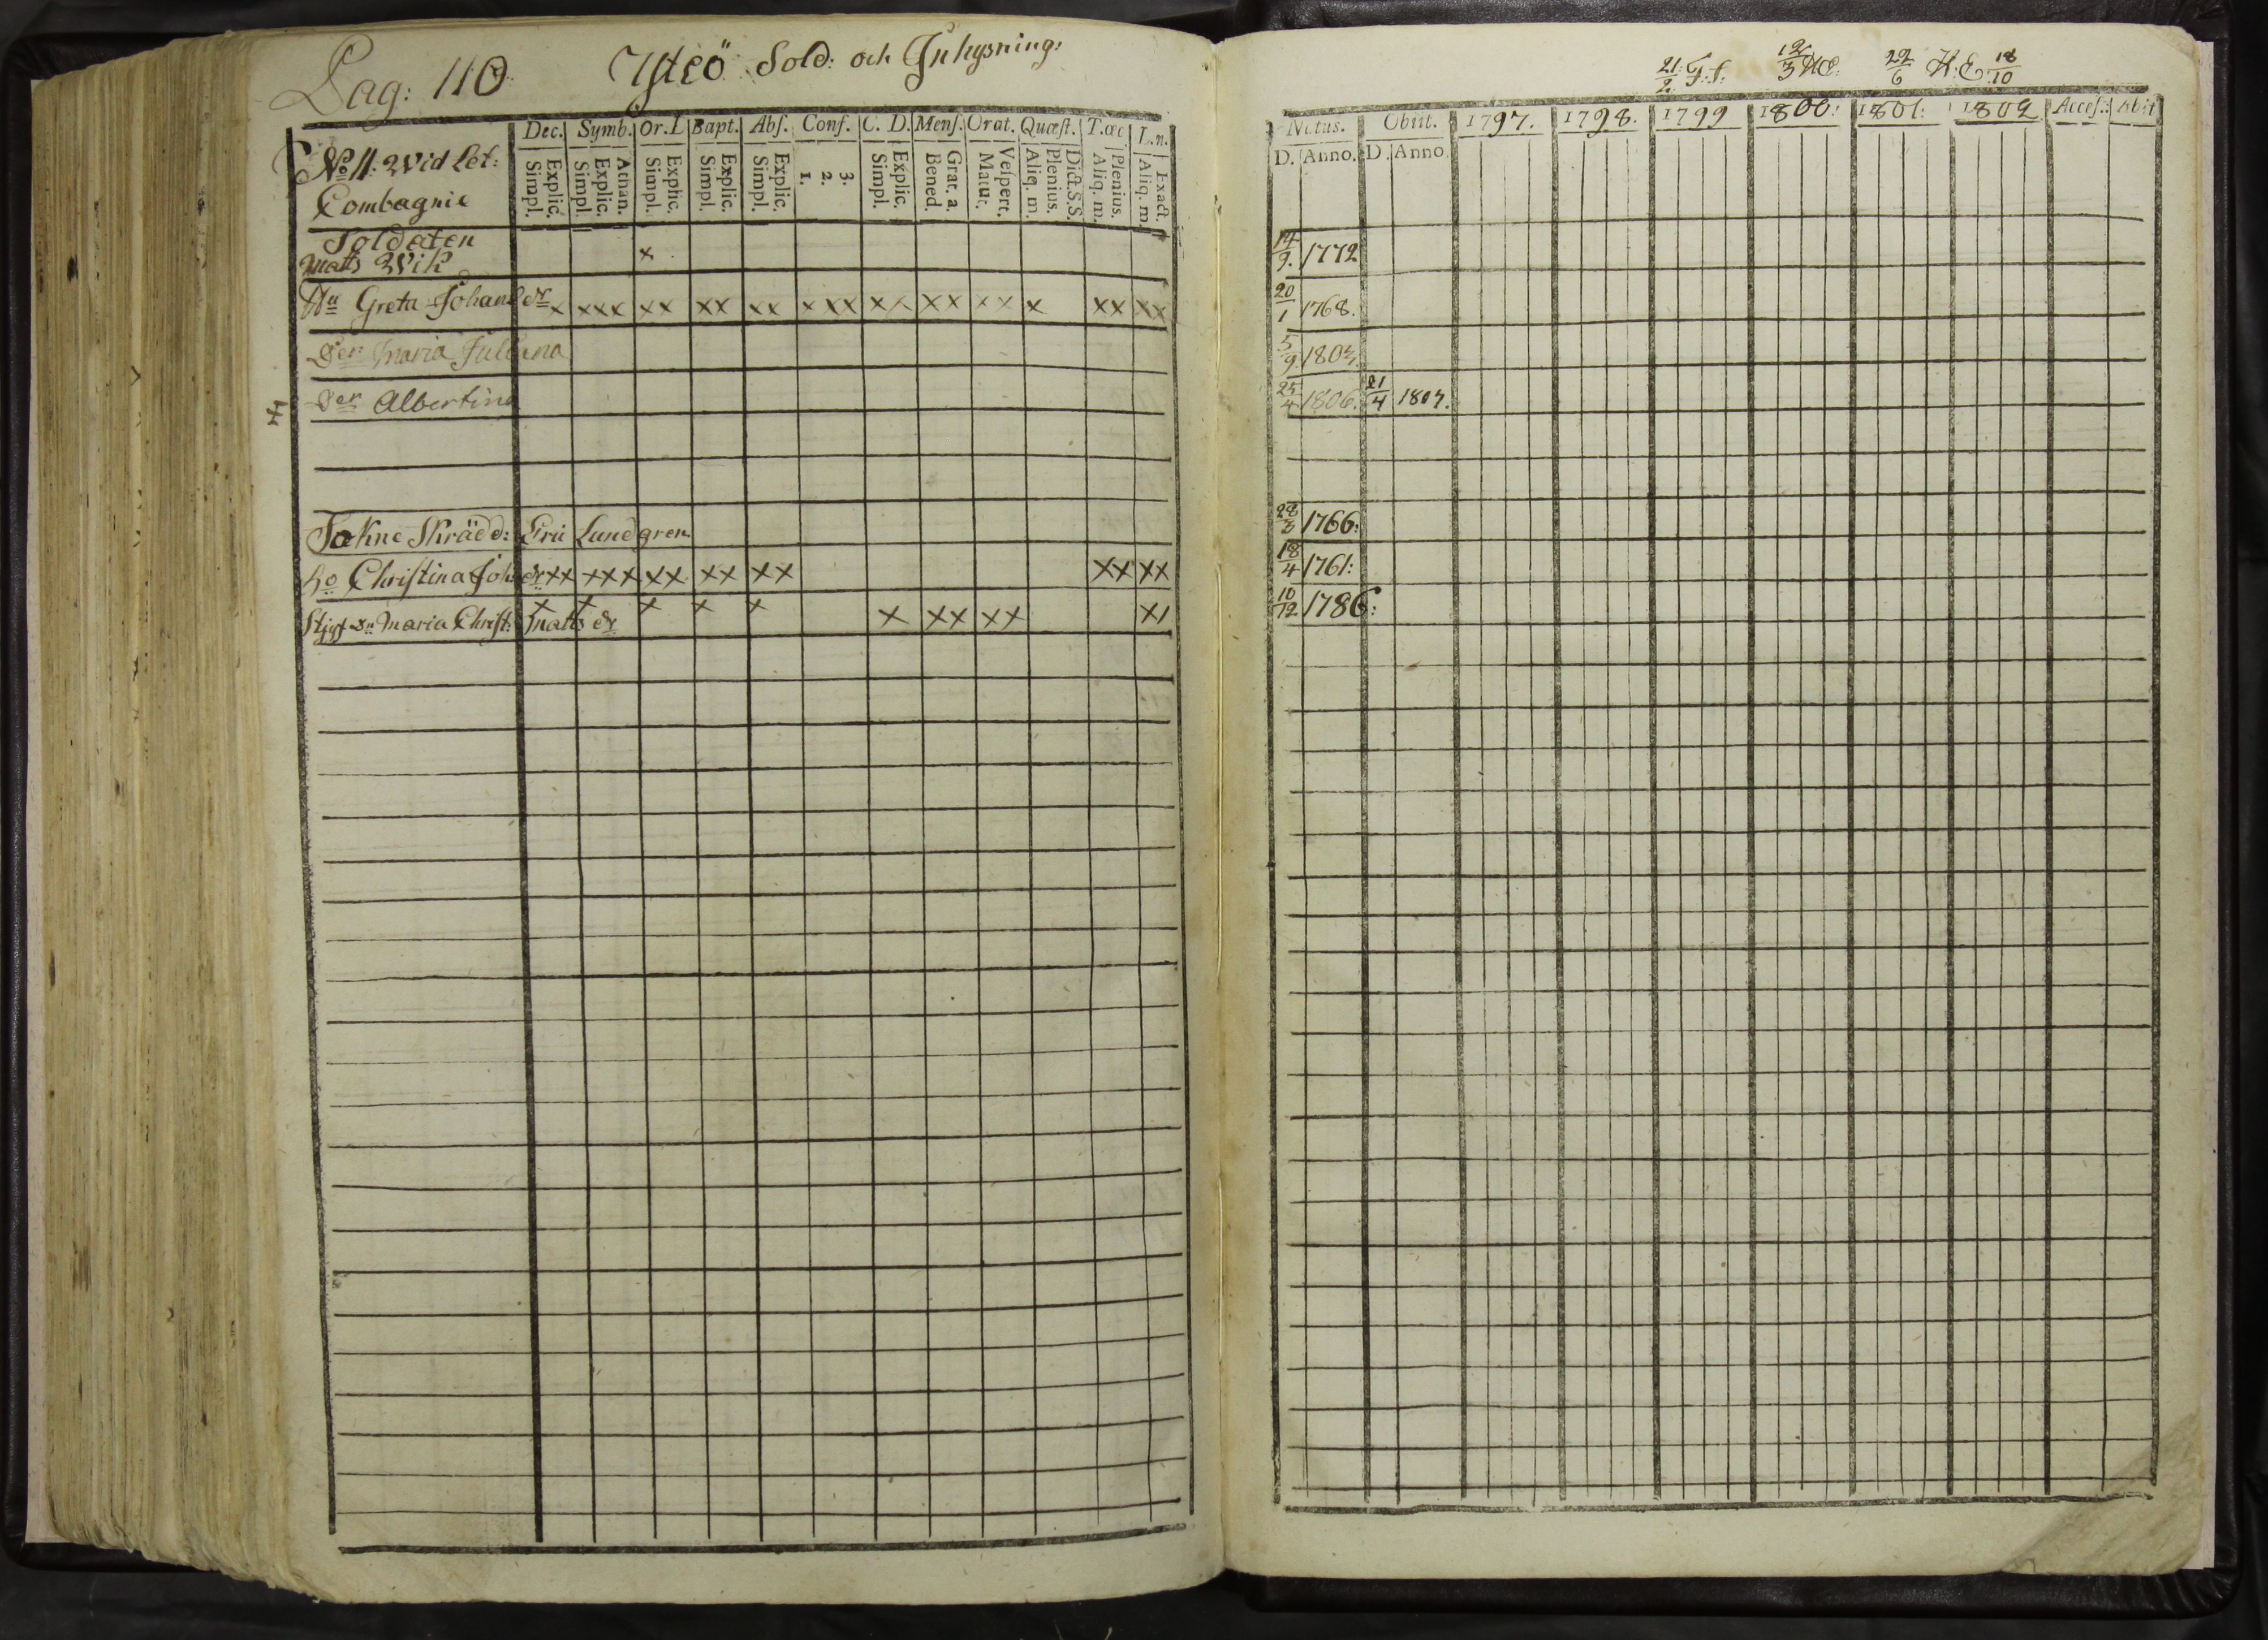 Pag: 110
Ysteö Sold: och Inhysning:
Dec. Symb. Or. L Bapt. Abſ. Conf. C. D. Menſ. Orat. Quæſt. T. œc L. n.
Explic. Simpl. Athan. Explic. Simpl. Explic. Simpl. Explic. Simpl. Explic. Simpl. 3. 2. 1. Explic. Simpl. Grat. a. Bened. Veſpert. Matut. Dict. S.S. Plenius. Aliq. m. Plenius. Aliq. m. Exact. Aliq. m
No 11: Wid Let:
Compagnie
Soldaten
Matts Wik x
Hu Greta Johans dr x xxx xx xx xx xxx xx xx xx x xx xx
Der Maria Juliana
Der Albertina
Sokne Skrädd: Eric Lundgren
Ho Christina Joh: dr xx xxx xx xx xx xx xx
Stjuf Dr Maria Christ: Matts dr x x x x x x xx xx x1
21/2 F. f. 12/3 22/6 H. E. 18/10
Natus. Obiit. 1797. 1798. 1799 1800: 1801: 1802 Acceſ.: Abit
D. Anno. D. Anno.
14/9. 1772
20/1 1768.
5/9 1803.
25/4 1806. 21/4 1807.
28/8 1766:
18/4 1761:
10/12 1786: